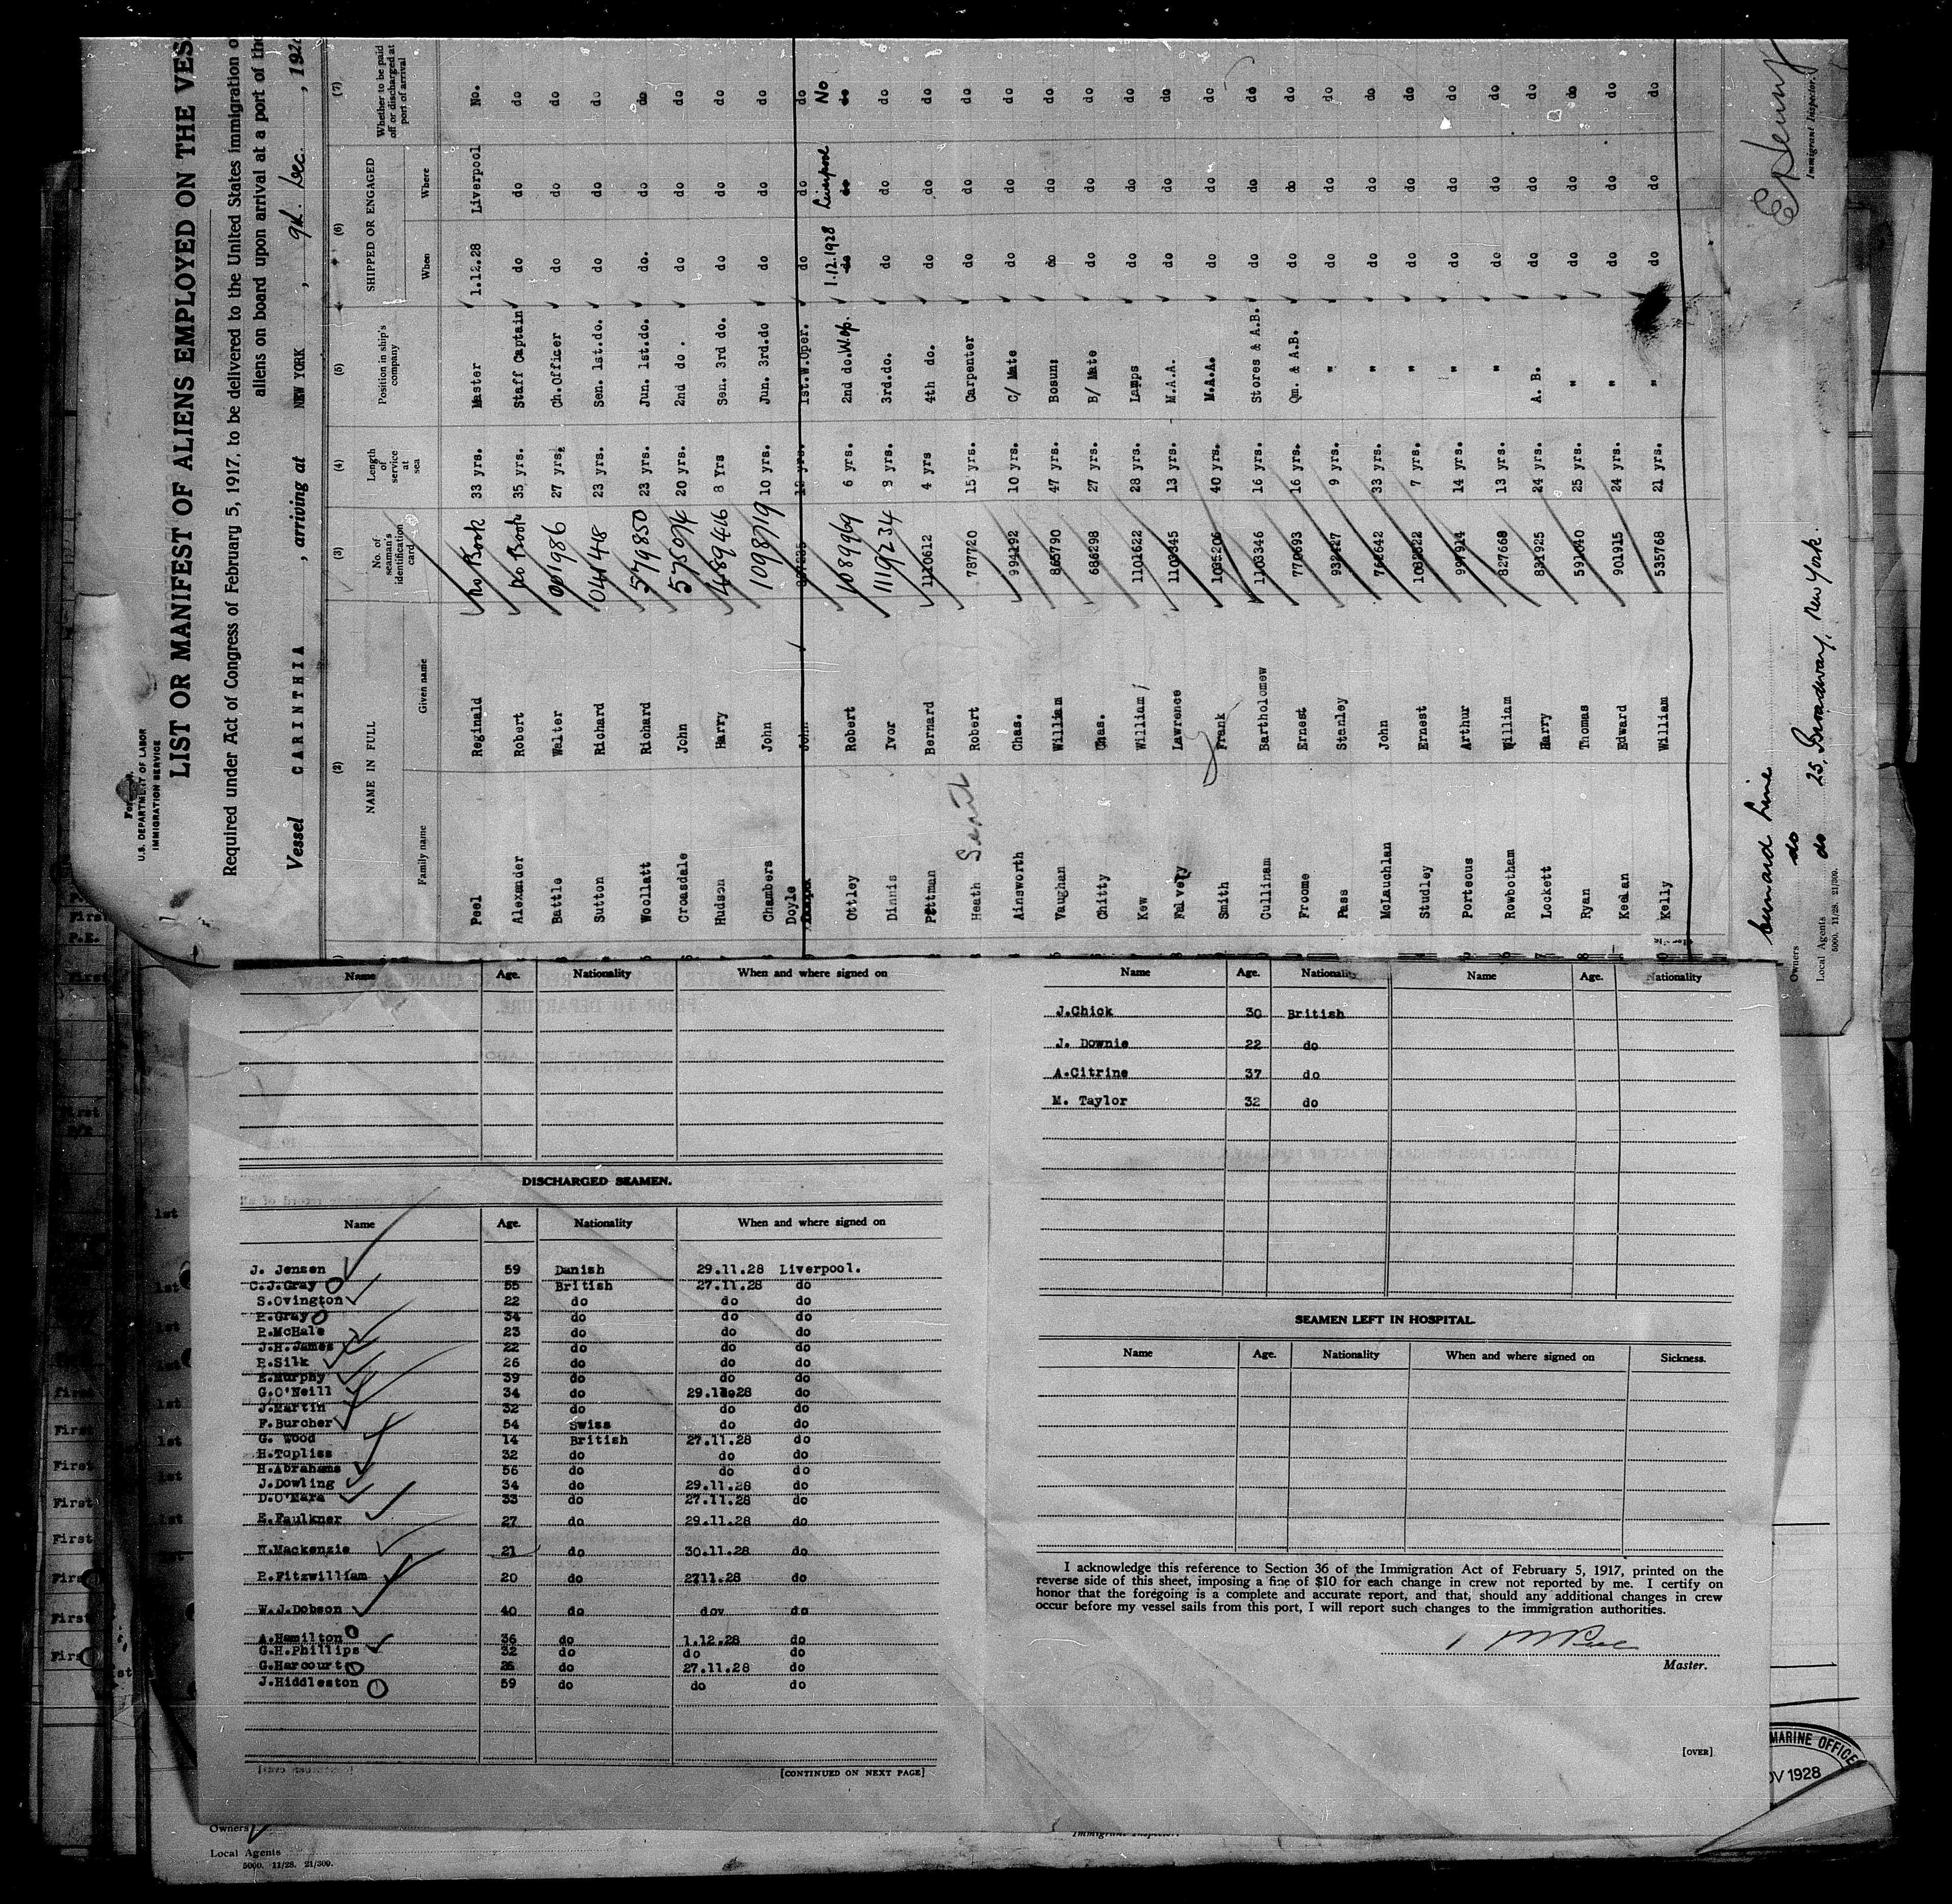 Form
U.S. DEPARTMENT OF LABOR
IMMIGRATION SERVICE
LIST OR MANIFEST OF ALIENS EMPLOYED ON THE VES
Required under Act of Congress of February 5, 1917, to be delivered to the United States immigration o
aliens on board upon arrival at a port of the
Vessel CARINTHIA , arriving at NEW YORK , 9th. Dec. , 192
(2) (3) (4) (5) (6) (7)
NAME IN FULL No. of seaman's identification card Length of service at sea Position in ship's company SHIPPED OR ENGAGED Whether to be paid off or discharged at port of arrival
Family name Given name When Where
Peel Reginald No Book 33 yrs. Master 1.12.28 Liverpool No.
Alexander Robert No Book 35 yrs. Staff Captain do do do
Battle Walter 001986 27 yrs. Ch.Officer do do do
Sutton Richard 04148 23 yrs. Sen. 1st.do. do do do
Woollatt Richard 579850 23 yrs. Jun. 1st.do. do. do do
Croasdale John 575074 20 yrs. 2nd do . do do do
Hudson Harry 489416 8 Yrs Sen. 3rd do. do do do
Chambers John 1098719 10 yrs. Jun. 3rd.do do do do
Doyle John 1st.W.Oper. do do do
Ottley Robert 1089969 6 yrs. 2nd do.W.op. 1.12.1928 Liverpool No
do do do
Dinnis Ivor 1119234 3 yrs. 3rd.do. do do do
Pittman Bernard 1110612 4 yrs 4th do. do do do
Heath Robert 787720 15 yrs. Carpenter do do do
Ainsworth Chas. 994192 10 yrs. C/ Mate do do do
Vaughan William 865790 47 yrs. Bosun: do do do
Chitty Chas. 686298 27 yrs. B/ Mate do do do
Kew William 1101622 28 yrs. Lamps do do do
Falvery Lawrence 1109345 13 yrs. M.A.A. do do do
Smith Frank 1035206 40 yrs. M.A.A. do do do
Cullinan Bartholomew 1103346 16 yrs. Stores & A.B. do do do
Froome Ernest 770693 16 yrs. Qm. & A.B. do do do
Pass Stanley 932427 9 yrs. " do do do
McLauchlan John 762642 33 yrs. " do do do
Studley Ernest 1032822 7 yrs. " do do do
Porteous Arthur 997914 14 yrs. " do do do
Rowbotham William 827668 13 yrs. " do do do
Lockett Harry 831925 24 yrs. A. B. do do do
Ryan Thomas 591040 25 yrs. " do do do
Keelan Edward 901915 24 yrs. " do do do
Kelly William 535768 21 yrs. " do do do
Cunard Line
Owners do
Local Agents do 25, Broadway, New York.
5000. 11/28. 21/309.
Immigrant Inspector.
Name Age. Nationality When and where signed on
DISCHARGED SEAMEN.
Name Age. Nationality When and where signed on
J. Jensen 59 Danish 29.11.28 Liverpool.
C.J.Gray 55 British 27.11.28 do
S.Ovington 22 do do do
R.Gray 34 do do do
P.McHale 23 do do do
J.H.James 22 do do do
P.Silk 26 do do do
E.Murphy 39 do do do
G.O'Neill 34 do 29.11.28 do
J.Martin 32 do do do
F.Burcher 54 Swiss do do
G. Wood 14 British 27.11.28 do
H.Topliss 32 do do do
H.Abrahams 56 do do do
J.Dowling 34 do 29.11.28 do
D.O'Mara 33 do 27.11.28 do
E.Faulkner 27 do 29.11.28 do
W.Mackenzie 21 do 30.11.28 do
P.Fitzwilliam 20 do 2711.28 do
W.J.Dobson 40 do dov do
A.Hamilton 36 do 1.12.28 do
G.H.Phillips 32 do do do
G.Harcourt do 27.11.28 do
J.Hiddleston 59 do do do
[CONTINUED ON NEXT PAGE]
Name Age. Nationality Name Age. Nationality
J.Chick 30 British
J. Downie 22 do
A.Citrine 37 do
M. Taylor 32 do
SEAMEN LEFT IN HOSPITAL.
Name Age. Nationality When and where signed on Sickness.
I acknowledge this reference to Section 36 of the Immigration Act of February 5, 1917, printed on the
reverse side of this sheet, imposing a fine of $10 for each change in crew not reported by me. I certify on
honor that the foregoing is a complete and accurate report, and that, should any additional changes in crew
occur before my vessel sails from this port, I will report such changes to the immigration authorities.
Master.
[OVER]
MARINE OFFICE
OV 1928
Owners
Local Agents
5000. 11/28. 21/309.
Immigrant Inspector.